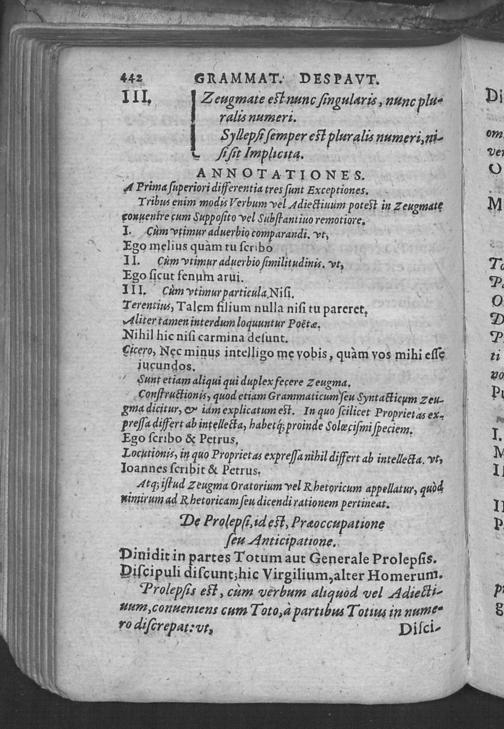 442 GRAMMAT. DESPAVT.
III. Zeugmate est nunc singularis, nunc plu-
ralis numeri.
Syllepsi semper est pluralis numeri, ni-
si sit Implicita.
ANNOTATIONES.
A Prima superiori differentia tres sunt Exceptiones.
Tribus enim modis Verbum vel Adiectiuum potest in Zeugmate
conuenire cum Supposito vel Substantiuo remotiore.
I. Cùm vtimur aduerbio comparandi. vt,
Ego melius quàm tu scribo
II. Cùm vtimur aduerbio similitudinis. vt,
Ego sicut fenum arui.
III. Cùm vtimur particula, Nisi.
Terentius, Talem filium nulla nisi tu pareret.
Aliter tamen interdum loquuntur Poëtæ.
Nihil hic nisi carmina desunt.
Cicero, Nec minus intelligo me vobis, quàm vos mihi esse
iucundos.
Sunt etiam aliqui qui duplex fecere Zeugma.
Constructionis, quod etiam Grammaticum seu Syntacticum Zeu-
gma dicitur, & iam explicatum est. In quo scilicet Proprietas ex-
pressa differt ab intellecta, habetq; proinde Solœcismi speciem.
Ego scribo & Petrus,
Locutionis, in quo Proprietas expressa nihil differt ab intellecta. vt,
Ioannes scribit & Petrus.
Atq; istud Zeugma Oratorium vel Rhetoricum appellatur, quòd
nimirum ad Rhetoricam seu dicendi rationem pertineat.
De Prolepsi, id est, Præoccupatione
seu Anticipatione.
Diuidit in partes Totum aut Generale Prolepsis.
Discipuli discunt; hic Virgilium, alter Homerum.
Prolepsis est, cùm verbum aliquod vel Adiecti-
uum, conueniens cum Toto, à partibus Totius in nume-
ro discrepat: vt, Disci-